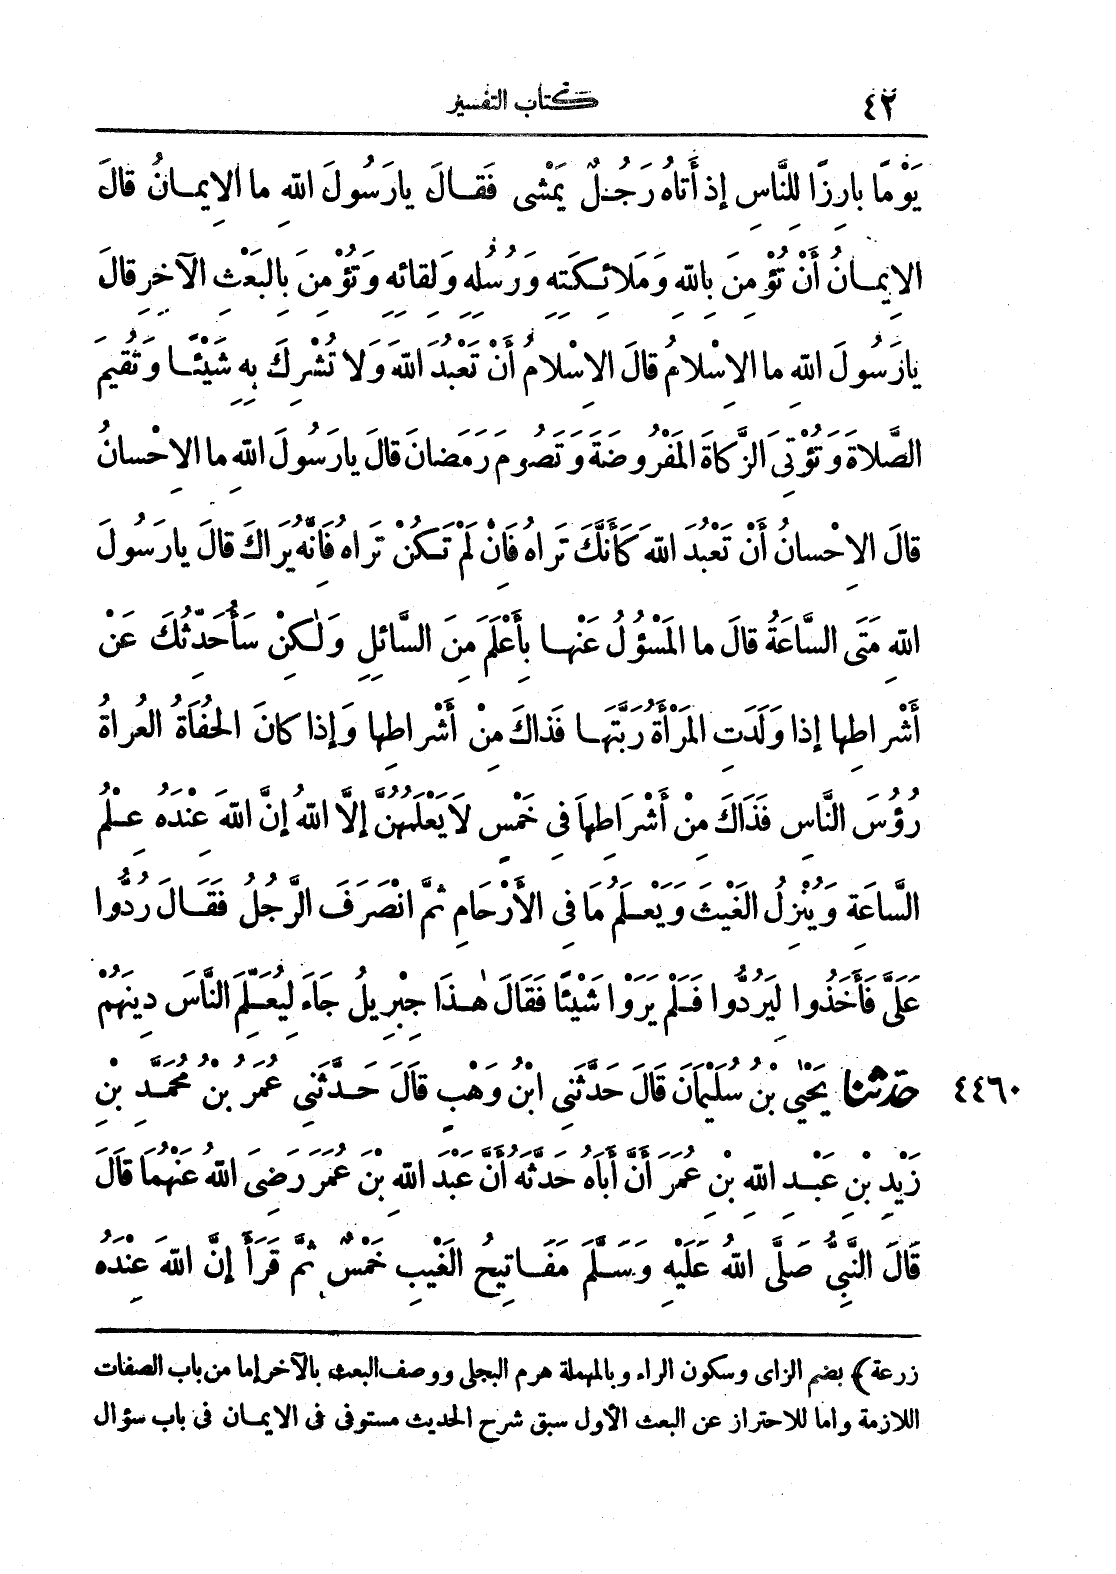 ٤٢ كتاب التفسير
يَوْمًا بارِزًا لِلنَّاسِ إذ أَتاهُ رَجُلٌ يَمْشِى فَقَالَ يارَسُولَ اللهِ ما الإِيمانُ قالَ
الإِيمانُ أَنْ تُؤْمِنَ بِاللهِ وَمَلائِكَتِهِ وَرُسُلِهِ وَلِقائِهِ وَتُؤْمِنَ بِالبَعْثِ الآخِرِ قالَ
يارَسُولَ اللهِ ما الإِسْلامُ قالَ الإِسْلامُ أَنْ تَعْبُدَ اللهَ وَلا تُشْرِكَ بِهِ شَيْئًا وَتُقِيمَ
الصَّلاةَ وَتُؤْتِىَ الزَّكاةَ المَفْرُوضَةَ وَتَصُومَ رَمَضانَ قالَ يارَسُولَ اللهِ ما الإِحْسانُ
قالَ الإِحْسانُ أَنْ تَعْبُدَ اللهَ كَأَنَّكَ تَراهُ فَانْ لَمْ تَكُنْ تَراهُ فَانَّهُ يَراكَ قالَ يارَسُولَ
اللهِ مَتَى السَّاعَةُ قالَ ما المَسْؤُلُ عَنْها بِأَعْلَمَ مِنَ السَّائِلِ وَلٰكِنْ سَأُحَدِّثُكَ عَنْ
أَشْراطِها إذا وَلَدَتِ المَرْأَةُ رَبَّتَها فَذاكَ مِنْ أَشْراطِها وَإذا كانَ الحُفاةُ العُراةُ
رُؤُسَ النَّاسِ فَذَاكَ مِنْ أَشْرَاطِهاَ فى خَمْسٍ لاَ يَعْلَمُهُنَّ إلَّا اللهُ إنَّ اللهَ عِنْدَهُ عِلْمُ
السَّاعَةِ وَيُنْزِلُ الغَيْثَ وَيَعْلَمُ مَا فِى الأَرْحَامِ ثُمَّ انْصَرَفَ الرَّجُلُ فَقَالَ رُدُّوا
عَلَىَّ فَأَخَذُوا لِيَرُدُّوا فَلَمْ يَرَوْا شَيْئًا فَقَالَ هٰذَا جِبْرِيلُ جَاءَ لِيُعَلِّمَ النَّاسَ دِينَهُمْ
٤٤٦٠ حدثنا يَحْيَى بنُ سُلَيْمَانَ قَالَ حَدَّثَنِى ابْنُ وَهْبٍ قالَ حَدَّثَنِى عُمَرُ بْنُ مُحَمَّدِ بْنِ
زَيْدِ بْنِ عَبْدِ اللهِ بْنِ عُمَرَ أَنَّ أَبَاهُ حَدَّثَهُ أَنَّ عَبْدَ اللهِ بْنَ عُمَرَ رَضِىَ اللهُ عَنْهُمَا قَالَ
قَالَ النَّبِىُّ صَلَّى اللهُ عَلَيْهِ وَسَلَّمَ مَفَاتِيحُ الغَيْبِ خَمْسٌ ثُمَّ قَرَأَ إنَّ اللهَ عِنْدَهُ
زرعة) بضم الزاى وسكون الراء وبالمهملة هرم البجلى ووصف البعث بالآخر إما من باب الصفات
اللازمة واما للاحتراز عن البعث الأول سبق شرح الحديث مستوفى فى الايمان فى باب سؤال